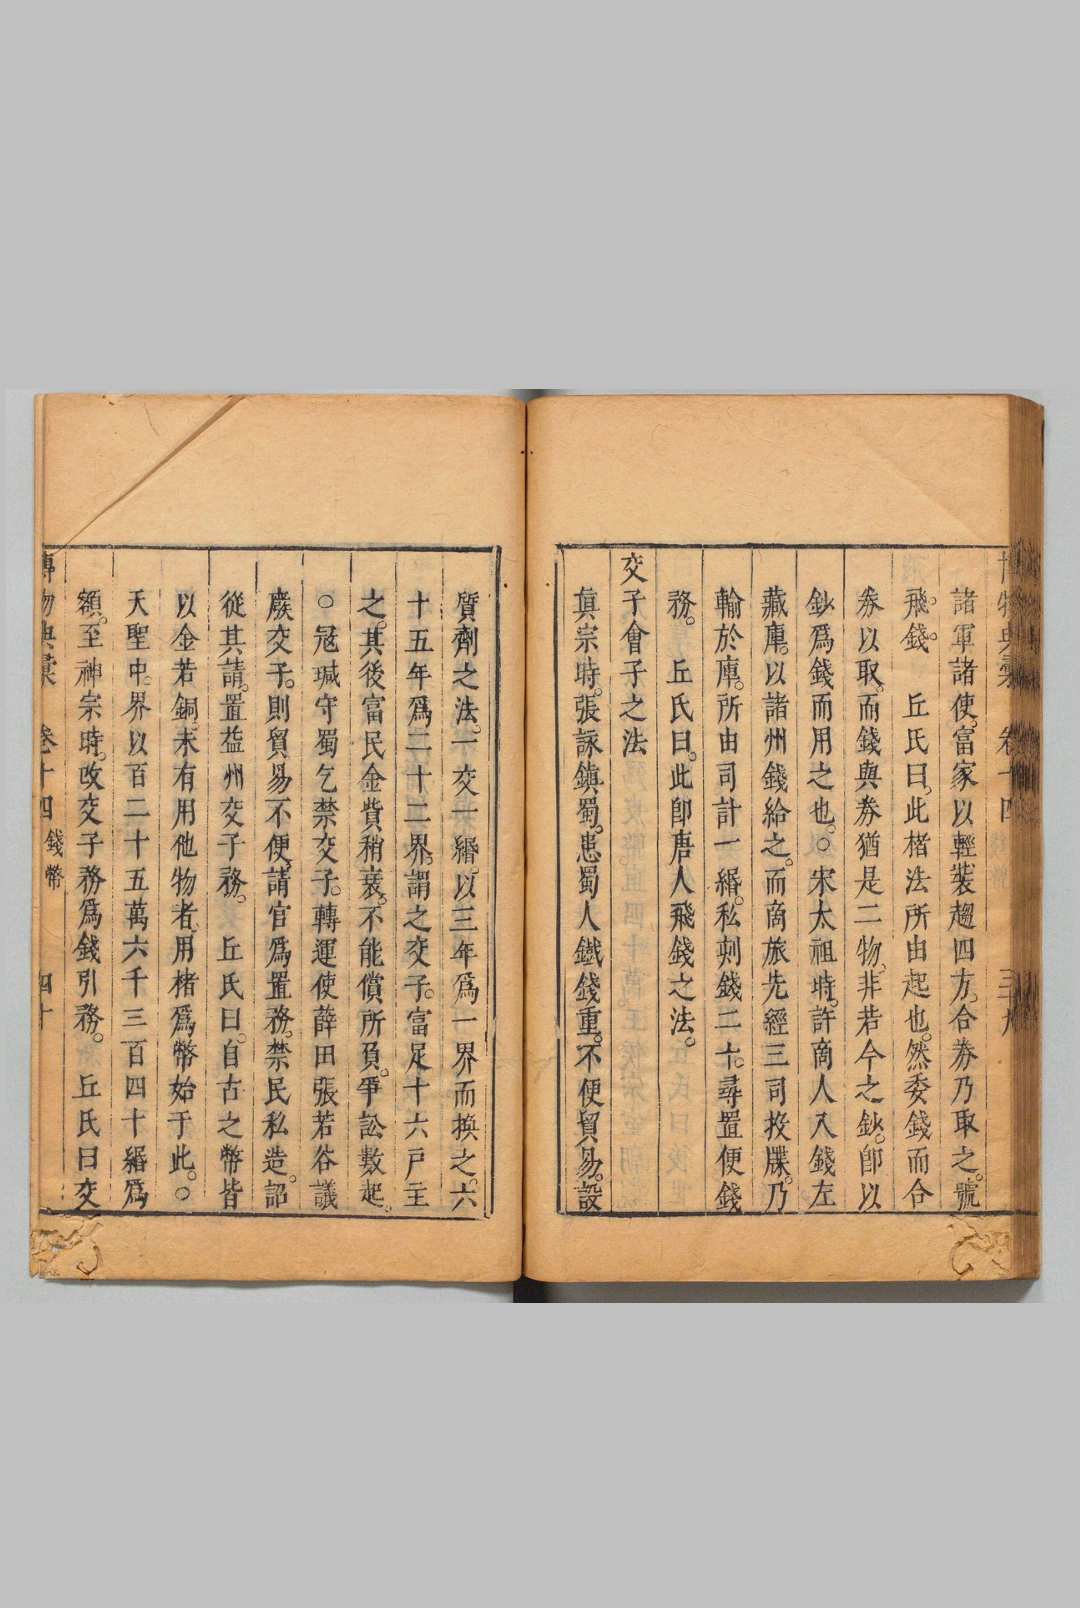 博物典彙 卷十四 錢幣 三十九
諸軍諸使。富家以輕裝趨四方。合券乃取之。號
飛錢。 丘氏曰。此楮法所由起也。然委錢而合
券以取。而錢與券猶是二物。非若今之鈔。卽以
鈔爲錢而用之也。○宋太祖時。許商人入錢左
藏庫。以諸州錢給之。而商旅先經三司投牒。乃
輸於庫。所由司計一緡。私刻錢二十。尋置便錢
務。 丘氏曰。此卽唐人飛錢之法。
交子會子之法
眞宗時。張詠鎭蜀。患蜀人鐵錢重。不便貿易。設
質劑之法。一交一緡。以三年爲一界而換之。六
十五年爲二十二界。謂之交子。富民十六戶主
之。其後富民金貲稍衰。不能償所負。爭訟數起。
○寇瑊守蜀乞禁交子。轉運使薛田張若谷議
廢交子。則貿易不便。請官爲置務。禁民私造。詔
從其請。置益州交子務。 丘氏曰。自古之幣皆
以金若銅。未有用他物者。用楮爲幣始于此。○
天聖中。界以百二十五萬六千三百四十緡爲
額。至神宗時。改交子務爲錢引務。 丘氏曰交
博物典彙 卷十四 錢幣 四十